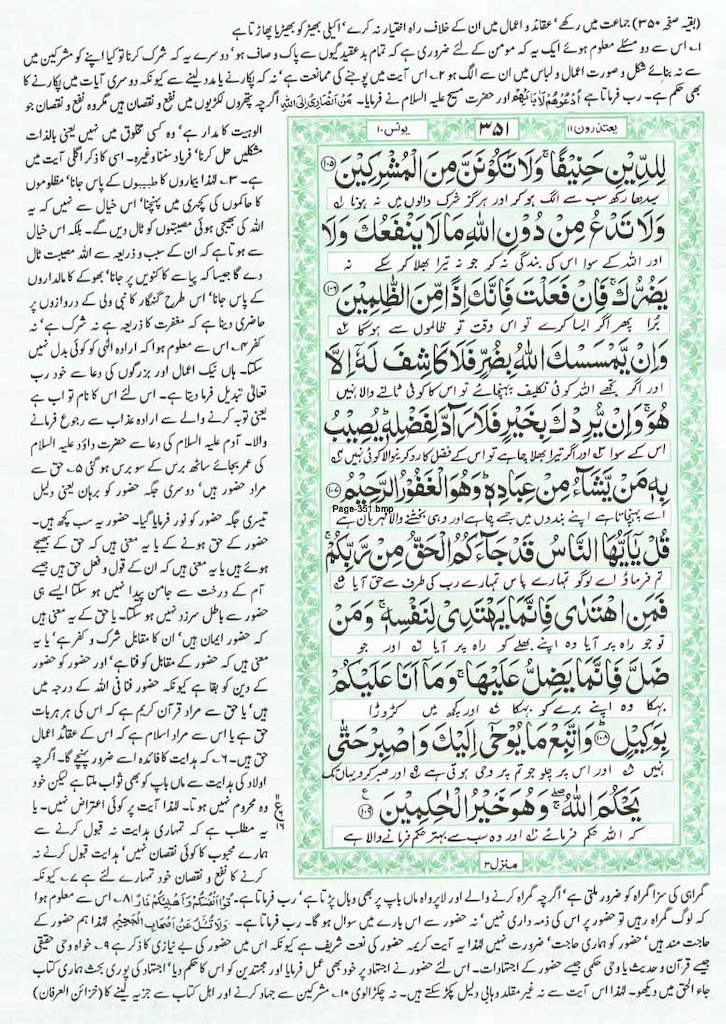 (بقیہ صفحہ ۳۵۰) جماعت میں رکھے، عقائد و اعمال میں ان کے خلاف راہ اختیار نہ کرے، اکیلی بھیڑ کو بھیڑیا پھاڑتا ہے
۱۔ اس سے دو مسئلے معلوم ہوئے ایک یہ کہ مومن کے لئے ضروری ہے کہ تمام بدعقیدگیوں سے پاک و صاف ہو، دوسرے یہ کہ شرک کرنا تو کیا اپنے کو مشرکین میں
سے نہ بنائے شکل و صورت اعمال و لباس میں ان سے الگ ہو ۲۔ اس آیت میں پوجنے کی ممانعت ہے، نہ کہ پکارنے یا مدد لینے سے کیونکہ دوسری آیات میں پکارنے کا
بھی حکم ہے۔ رب فرماتا ہے اُدْعُوْهُمْ لِاٰبَآئِهِمْ اور حضرت مسیح علیہ السلام نے فرمایا۔ مَنْ اَنْصَارِیْٓ اِلَی اللّٰہِ اگرچہ پتھروں لکڑیوں میں نفع و نقصان ہیں مگر وہ نفع و نقصان جو
یعتذرون ۱۱
۳۵۱
یونس ۱۰
لِلدِّيْنِ حَنِيْفًا ۚ وَلَا تَكُوْنَنَّ مِنَ الْمُشْرِكِيْنَ ﴿۱۰۵﴾
سیدھا رکھ سب سے الگ ہو کر اور ہرگز شرک والوں میں نہ ہونا
وَلَا تَدْعُ مِنْ دُوْنِ اللّٰهِ مَا لَا يَنْفَعُكَ وَلَا
اور اللہ کے سوا اس کی بندگی نہ کر جو نہ تیرا بھلا کر سکے نہ
يَضُرُّكَ ۚ فَاِنْ فَعَلْتَ فَاِنَّكَ اِذًا مِّنَ الظّٰلِمِيْنَ ﴿۱۰۶﴾
برا پھر اگر ایسا کرے تو اس وقت تو ظالموں سے ہوگا
وَاِنْ يَّمْسَسْكَ اللّٰهُ بِضُرٍّ فَلَا كَاشِفَ لَهٗٓ اِلَّا
اور اگر تجھے اللہ کوئی تکلیف پہنچائے تو اس کا کوئی ٹالنے والا نہیں
هُوَ ۚ وَاِنْ يُّرِدْكَ بِخَيْرٍ فَلَا رَآدَّ لِفَضْلِهٖ ؕ يُصِيْبُ
اس کے سوا اور اگر تیرا بھلا چاہے تو اس کے فضل کا رد کرنے والا کوئی نہیں
بِهٖ مَنْ يَّشَآءُ مِنْ عِبَادِهٖ ؕ وَهُوَ الْغَفُوْرُ الرَّحِيْمُ ﴿۱۰۷﴾
Page-351.bmp
اسے پہنچاتا ہے اپنے بندوں میں جسے چاہے اور وہی بخشنے والا مہربان ہے
قُلْ يٰٓاَيُّهَا النَّاسُ قَدْ جَآءَكُمُ الْحَقُّ مِنْ رَّبِّكُمْ ۚ
تم فرماؤ اے لوگو تمہارے پاس تمہارے رب کی طرف سے حق آیا
فَمَنِ اهْتَدٰى فَاِنَّمَا يَهْتَدِيْ لِنَفْسِهٖ ۚ وَمَنْ
تو جو راہ پر آیا وہ اپنے بھلے کو راہ پر آیا اور جو
ضَلَّ فَاِنَّمَا يَضِلُّ عَلَيْهَا ۚ وَمَآ اَنَا عَلَيْكُمْ
بہکا وہ اپنے برے کو بہکا اور کچھ میں کڑوڑا
بِوَكِيْلٍ ﴿۱۰۸﴾ وَاتَّبِعْ مَا يُوْحٰٓى اِلَيْكَ وَاصْبِرْ حَتّٰى
نہیں اور اس پر چلو جو تم پر وحی ہوتی ہے اور صبر کرو یہاں تک
يَحْكُمَ اللّٰهُ ۚ وَهُوَ خَيْرُ الْحٰكِمِيْنَ ﴿۱۰۹﴾
کہ اللہ حکم فرمائے اور وہ سب سے بہتر حکم فرمانے والا ہے
منزل ۳
الوہیت کا مدار ہے، وہ کسی مخلوق میں نہیں یعنی بالذات
مشکلیں حل کرنا، فریاد سننا وغیرہ۔ اسی کا ذکر اگلی آیت میں
ہے۔ ۳۔ لہذا بیماروں کا طبیبوں کے پاس جانا، مظلوموں
کا حاکموں کی کچہری میں پہنچنا، اس خیال سے نہیں کہ یہ
اللہ کی بھیجی ہوئی مصیبتوں کو ٹال دیں گے۔ بلکہ اس خیال
سے ہوتا ہے کہ ان کے سبب و ذریعہ سے اللہ مصیبت ٹال
دے گا جیسا کہ پیاسے کا کنویں پر جانا، بھوکے کا مالداروں
کے پاس جانا، اس طرح گنہگار کا نبی ولی کے دروازوں پر
حاضری دینا ہے کہ مغفرت کا ذریعہ ہے نہ شرک ہے، نہ
کفر ۴۔ اس سے معلوم ہوا کہ ارادہ الٰہی کو کوئی بدل نہیں
سکتا۔ ہاں نیک اعمال اور بزرگوں کی دعا سے خود رب
تعالیٰ تبدیل فرما دیتا ہے۔ اس لئے اس کا نام تواب ہے
یعنی توبہ کرنے والے سے ارادہ عذاب سے رجوع فرمانے
والا۔ آدم علیہ السلام کی دعا سے حضرت داؤد علیہ السلام
کی عمر بجائے ساٹھ برس کے سو برس ہو گئی ۵۔ حق سے
مراد حضور ہیں، دوسری جگہ حضور کو برہان یعنی دلیل
تیسری جگہ حضور کو نور فرمایا گیا۔ حضور یہ سب کچھ ہیں۔
حضور کے حق ہونے کے یا یہ معنی ہیں کہ حق کے بھیجے
ہوئے ہیں یا یہ معنی ہیں کہ ان کے قول و فعل حق ہیں جیسے
آم کے درخت سے جامن پیدا نہیں ہو سکتا ایسے ہی
حضور سے باطل سرزد نہیں ہو سکتا۔ یا حق کے یہ معنی ہیں
کہ حضور ایمان ہیں، ان کا مقابل شرک و کفر ہے، یا یہ
معنی ہیں کہ حضور کے مقابل کو فنا ہے، اور حضور کو حضور
کے دین کو بقا ہے کیونکہ حضور فنا فی اللہ کے درجہ میں
ہیں، یا حق سے مراد قرآن کریم ہے کہ اس کی ہر ہر بات
حق ہے یا اس سے مراد اسلام ہے کہ اس کے عقائد اعمال
حق ہیں۔ ۶۔ کہ ہدایت کا فائدہ اسے ضرور پہنچے گا۔ اگرچہ
اولاد کی ہدایت سے ماں باپ کو بھی ثواب ملتا ہے لیکن خود
وہ محروم نہیں ہوتا۔ لہذا آیت پر کوئی اعتراض نہیں۔ یا
یہ مطلب ہے کہ تمہاری ہدایت نہ قبول کرنے سے
ہمارے محبوب کا کوئی نقصان نہیں، ہدایت قبول نہ
کرنے کا نفع و نقصان خود تمہارے لئے ہے ۷۔ کیونکہ
گمراہی کی سزا گمراہ کو ضرور ملتی ہے، اگرچہ گمراہ کرنے والے اور لاپرواہ ماں باپ پر بھی وبال پڑتا ہے، رب فرماتا ہے۔ قُوْٓا اَنْفُسَكُمْ وَاَهْلِیْكُمْ نَارًا ۸۔ اس سے معلوم ہوا
کہ لوگ گمراہ رہیں تو حضور پر اس کی ذمہ داری نہیں، نہ حضور سے اس بارے میں سوال ہوگا۔ رب فرماتا ہے۔ وَلَا تُسْئَلُ عَنْ اَصْحٰبِ الْجَحِیْمِ لہذا ہم حضور کے
حاجت مند ہیں، حضور کو ہماری حاجت، ضرورت نہیں لہذا یہ آیت کریمہ حضور کی نعت شریف ہے کیونکہ اس میں حضور کی بے نیازی کا ذکر ہے ۹۔ خواہ وحی حقیقی
جیسے قرآن و حدیث یا وحی حکمی جیسے حضور کے اجتہادات۔ اس لئے حضور نے اجتہاد پر خود بھی عمل فرمایا اور مجتہدین کو اس کا حکم دیا، اجتہاد کی پوری بحث ہماری کتاب
جاء الحق میں دیکھو۔ لہذا اس آیت سے نہ غیر مقلد وہابی دلیل پکڑ سکتے ہیں۔ نہ چکڑالوی ۱۰۔ مشرکین سے جہاد کرنے اور اہل کتاب سے جزیہ لینے کا (خزائن العرفان)